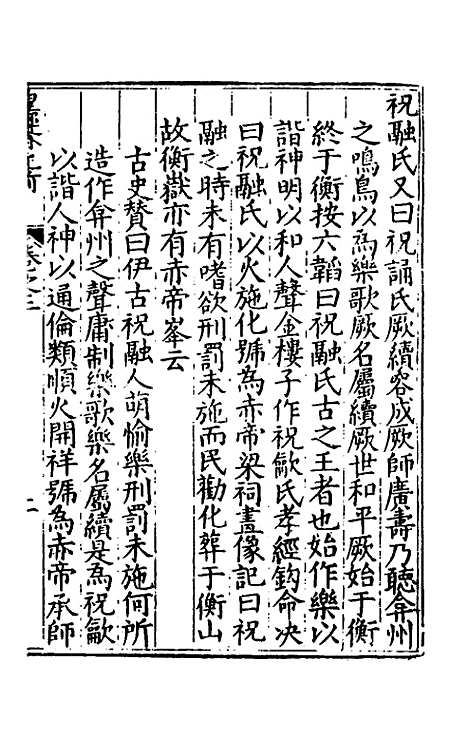 祝融氏又曰祝誦氏厥續容成厥師廣壽乃聽弇州
之鳴鳥以為樂歌厥名屬續厥世和平厥始于衡
終于衡按六韜曰祝融氏古之王者也始作樂以
諧神明以和人聲金樓子作祝龡氏孝經鈎命决
曰祝融氏以火施化號為赤帝梁祠畫像記曰祝
融之時未有嗜欲刑罰未施而民勸化葬于衡山
故衡嶽亦有赤帝峯云
古史贊曰伊古祝融人萌愉樂刑罰未施何所
造作弇州之聲庸制樂歌樂名屬續是為祝龡
以諧人神以通倫類順火開祥號為赤帝承師
卷之三